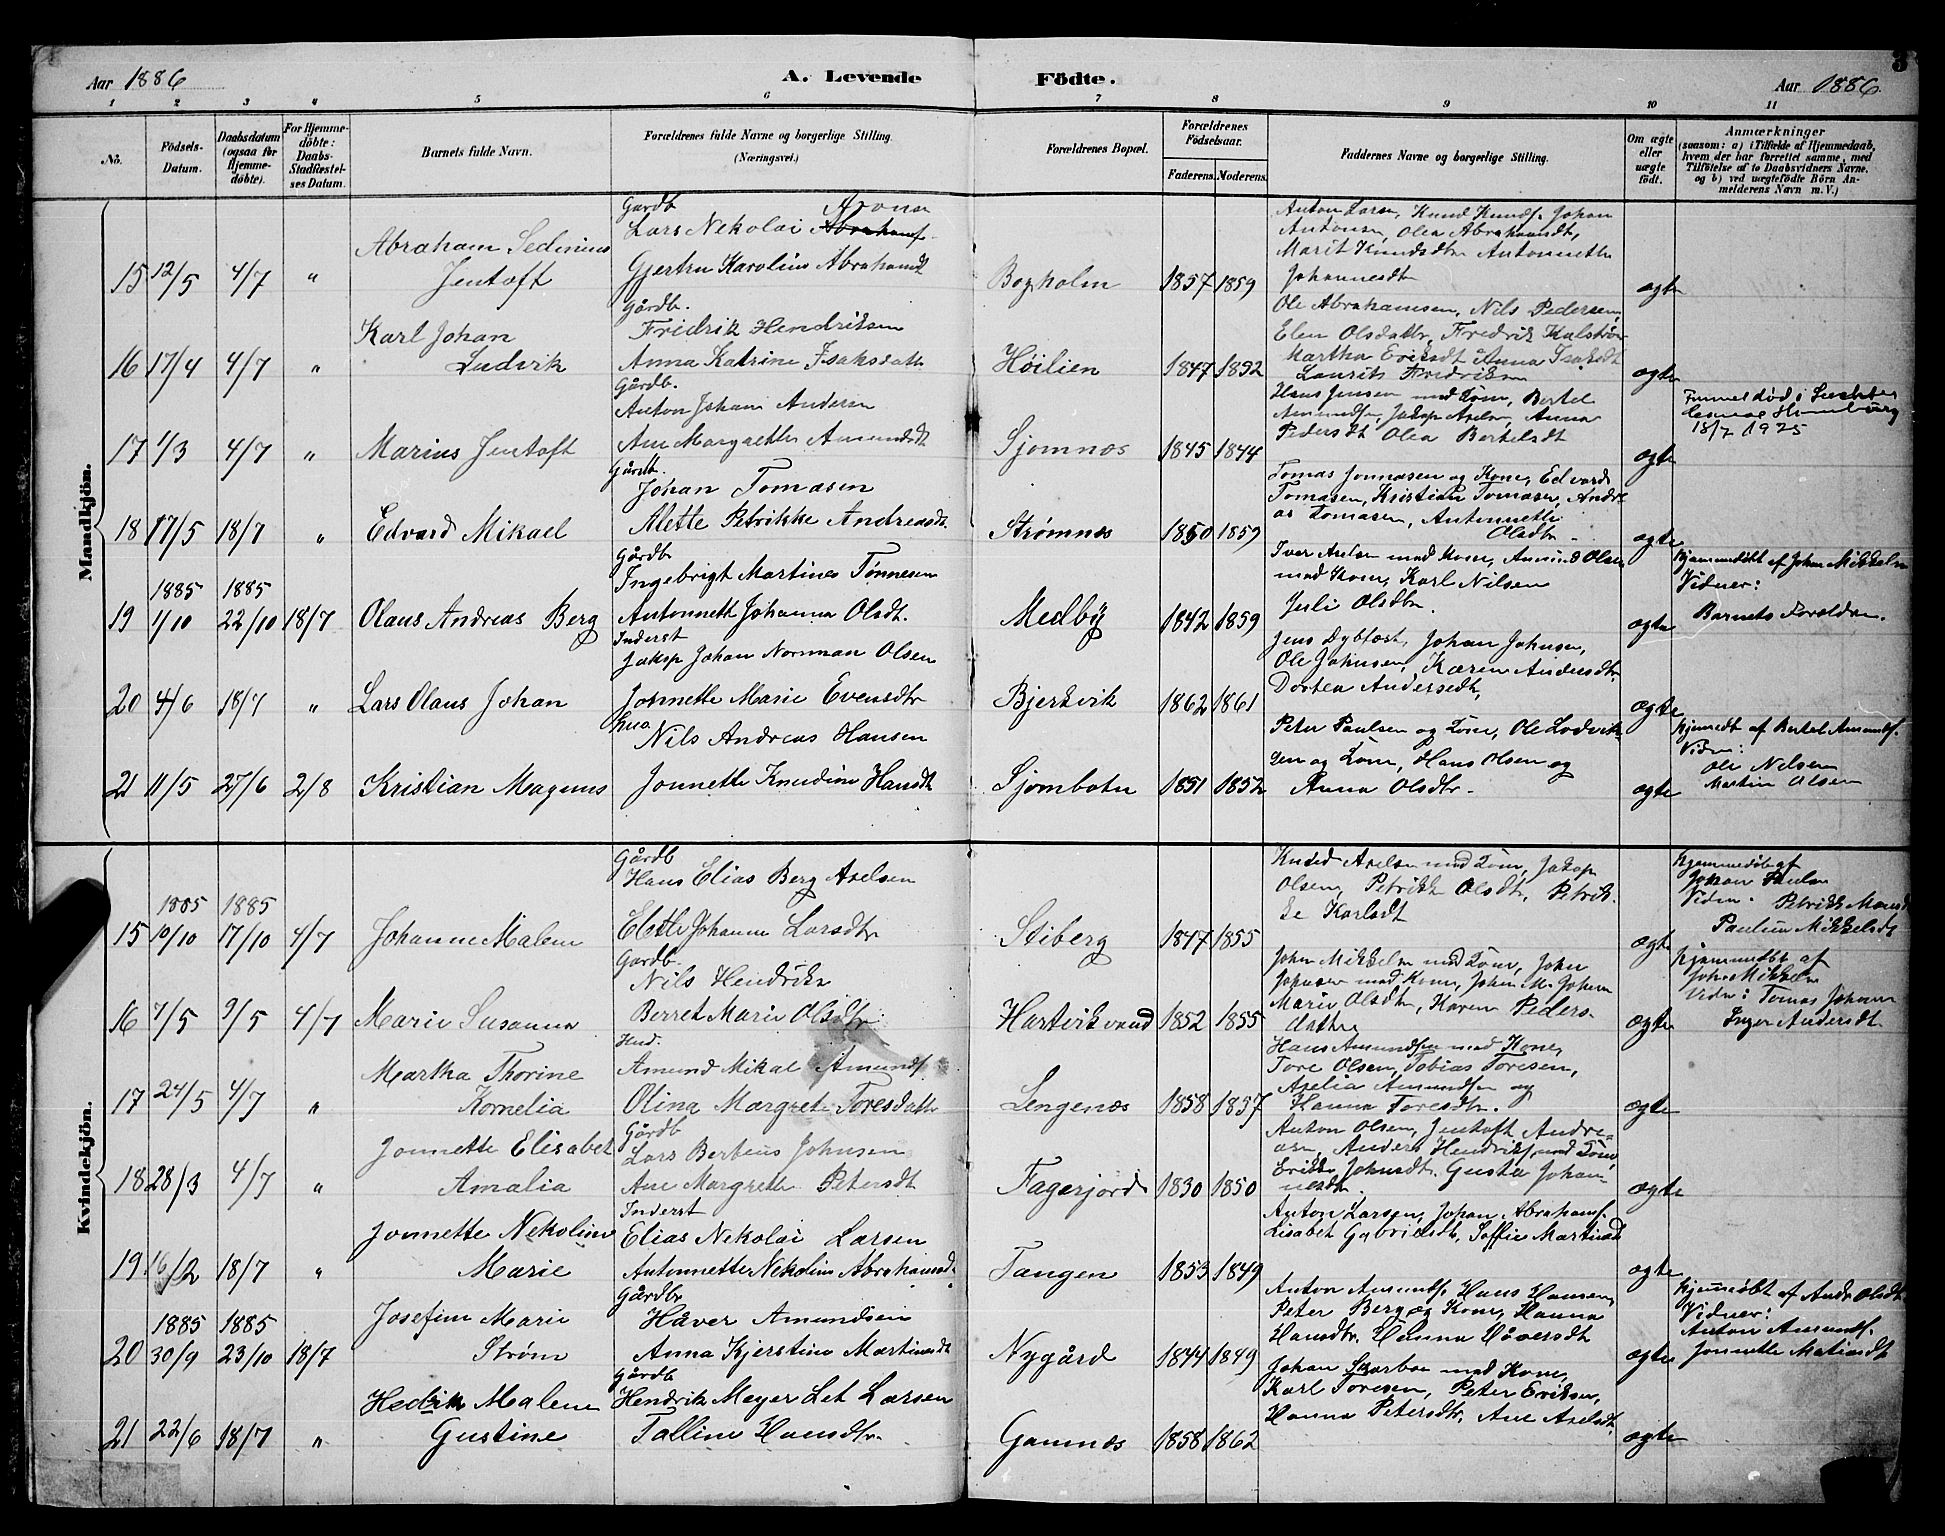 Aar 1886
A. Levende Födte.
Aar 1886.
3
1 2 3 4 5 6 7 8 9 10 11
No.
Födsels-Datum.
Daabsdatum (ogsaa for Hjemme-döbte).
For Hjemme-döbte: Daabs-Stadfæstel-ses Datum.
Barnets fulde Navn.
Forældrenes fulde Navne og borgerlige Stilling. (Næringsvei.)
Forældrenes Bopæl.
Forældrenes Födselsaar.
Faderens. Moderens.
Faddernes Navne og borgerlige Stilling.
Om ægte eller uægte födt.
Anmærkninger
(saasom: a) i Tilfælde af Hjemmedaab, hvem der har forrettet samme, med Tilföielse af to Daabsvidners Navne. og b) ved uægtefödte Börn An-melderens Navn m. V.)
Mandkjön.
15 12/5 4/7 "
Abraham Sedinius
Jentoft
Gardb
Lars Nekolai Abrahamf. Arons
Gjertru Karolius Abrahamdt
Bogholm 1857 1859
Anton Larsen, Knud Knudf. Johan
Antonsen, Olea Abrahamdt,
Marit Knudsdtr Antonnette
Johannesdtr
ægte
16 17/4 4/7 "
Karl Johan
Ludvik
Gårdb.
Fridrik Hendriksen
Anna Katrine Isaksdatt
Høilien 1847 1852
Ole Abrahamsen, Nils Pedersen,
Elen Olsdattr, Fredrik
Martha Eriksdt Anna Isaksdt
Laurits Fredriksen
ægte
17 1/3 4/7 "
Marius Jentoft
Gårdb.
Anton Johan Andersen
Ane Margrethe Amundsdt
Sjomnæs 1845 1844
Hans Jensen med Kone, Bertel
Amundsen, Jakop Axelsen, Anna
Pedersdt Olea Bertelsdt
ægte
død i
18/7 1925
18 17/5 18/7 "
Edvard Mikael
Gårdb.
Johan Tomasen
Alette Petrikke Andreasdt.
Strømnæs 1850 1859
Tomas Jonnasen og Kone, Edvard
Tomasen, Kristian Tomasen, Andre
as Tomasen, Antonnette
Olsdtr.
ægte
19 1885 1/10 1885 22/10 18/7
Olaus Andreas Berg
Gårdb
Ingebrigt Martines Tønnesen
Antonnette Johanna Olsdt.
Medby 1842 1859
Iver Axelsen med Kone, Amund Olsen
med Kone, Karl Nilsen
Juli Olsdtr.
ægte
Hjemmedøbt af Johan Mikkelsen
Vidner:
Barnets Foreldre.
20 4/6 18/7 "
Lars Olaus Johan
Inderst
Jakop Johan Norman Olsen
Jonnette Marie Evensdtr
Bjerkvik 1862 1861
Jens Dybfest, Johan Johnsen,
Ole Johnsen, Karen Andersdt,
Dortea Andersedt,
ægte
21 11/5 27/6 2/8
Kristian Magnus
Nils Andreas Hansen
Jonnette Knudine Hansdt
Sjombotn 1851 1852
Peter Paulsen og Kone, Ole Lodvik-
sen og Kone, Hans Olsen og
Anna Olsdtr.
ægte
Hjemedt af Bertel Amundf.
Vidn:
Ole Nilsen
Martin Olsen
Kvindekjön.
15 1885 10/10 1885 17/10 4/7
Johanne Malene
Gårdb
Hans Elias Berg Axelsen
Elette Johanne Larsdtr
Stiberg 1847 1855
Knud Axelsen med Kone, Jakop
Olsen, Petrikke Olsdt, Petrik-
ke Karlsdt
ægte
Hjemmedøbt af
Johan Paulsen
Vidn: Petrikke
Pauline Mikkelsdt
16 7/5 9/5 4/7
Marie Susanna
Gardb.
Nils Hendriksen
Berret Marie Olsdtr
Hartvikvand 1852 1855
John Mikkelsen med Kone, John
Johnsen med Kone, John M. Johnsen
Marie Olsdtr, Karen Peders-
datter
ægte
Hjemmedøbt af
John Mikkelsen
Vidn: Tomas Johnsen
Inger Andersdt
17 24/5 4/7 "
Martha Thorine
Kornelia
Hud.
Amund Mikal Amundf.
Olina Margrete Toresdatter
Lengenæs 1858 1857
Hans Amundsen med Kone,
Tore Olsen, Tobias Toresen,
Axelia Amundsen og
Hanna Toresdtr.
ægte
18 28/3 4/7 "
Jonnette Elisabet
Amalia
Gårdb
Lars Berteus Johnsen
Ane Margrethe Petersdt
Fagerjord 1830 1850
Anton Olsen, Jentoft Andre-
asen, Anders Hendriksf med Kone,
Erikke Johnsdt. Gusta Johan-
nesdtr.
ægte
19 16/2 18/7 "
Jonnette Nekoline
Marie
Inderst
Elias Nekolai Larsen
Antonnette Nekoline Abrahamsdt.
Tangen 1853 1849
Anton Larsen, Johan Abrahamf.
Lisabet Gabrielsdt, Soffie Martinsdt
ægte
20 1885 30/9 1885 23/10 18/7
Josefine Marie
Strøm
Gårdbr
Håver Amundsen
Anna Kjerstine Martinsdt
Nygård 1844 1849
Anton Amundf. Hans Hansen,
Peter Berg og Kone, Hanna
Hansdtr, Hanna Håversdt
ægte
Hjemmedøbt af Andr. Olsdt
Vidner:
Anton Amundf.
Jonnette Matiasdt
21 22/6 18/7 "
Hedrik Malene
Gustine
Gårdb
Hendrik Meyer Let Larsen
Talline Hansdtr.
Gamnæs 1858 1862
Johan Skarbo med Kone,
Karl Toresen, Peter Eriksen,
Hanna Petersdtr, Ane Axelsdt,
ægte